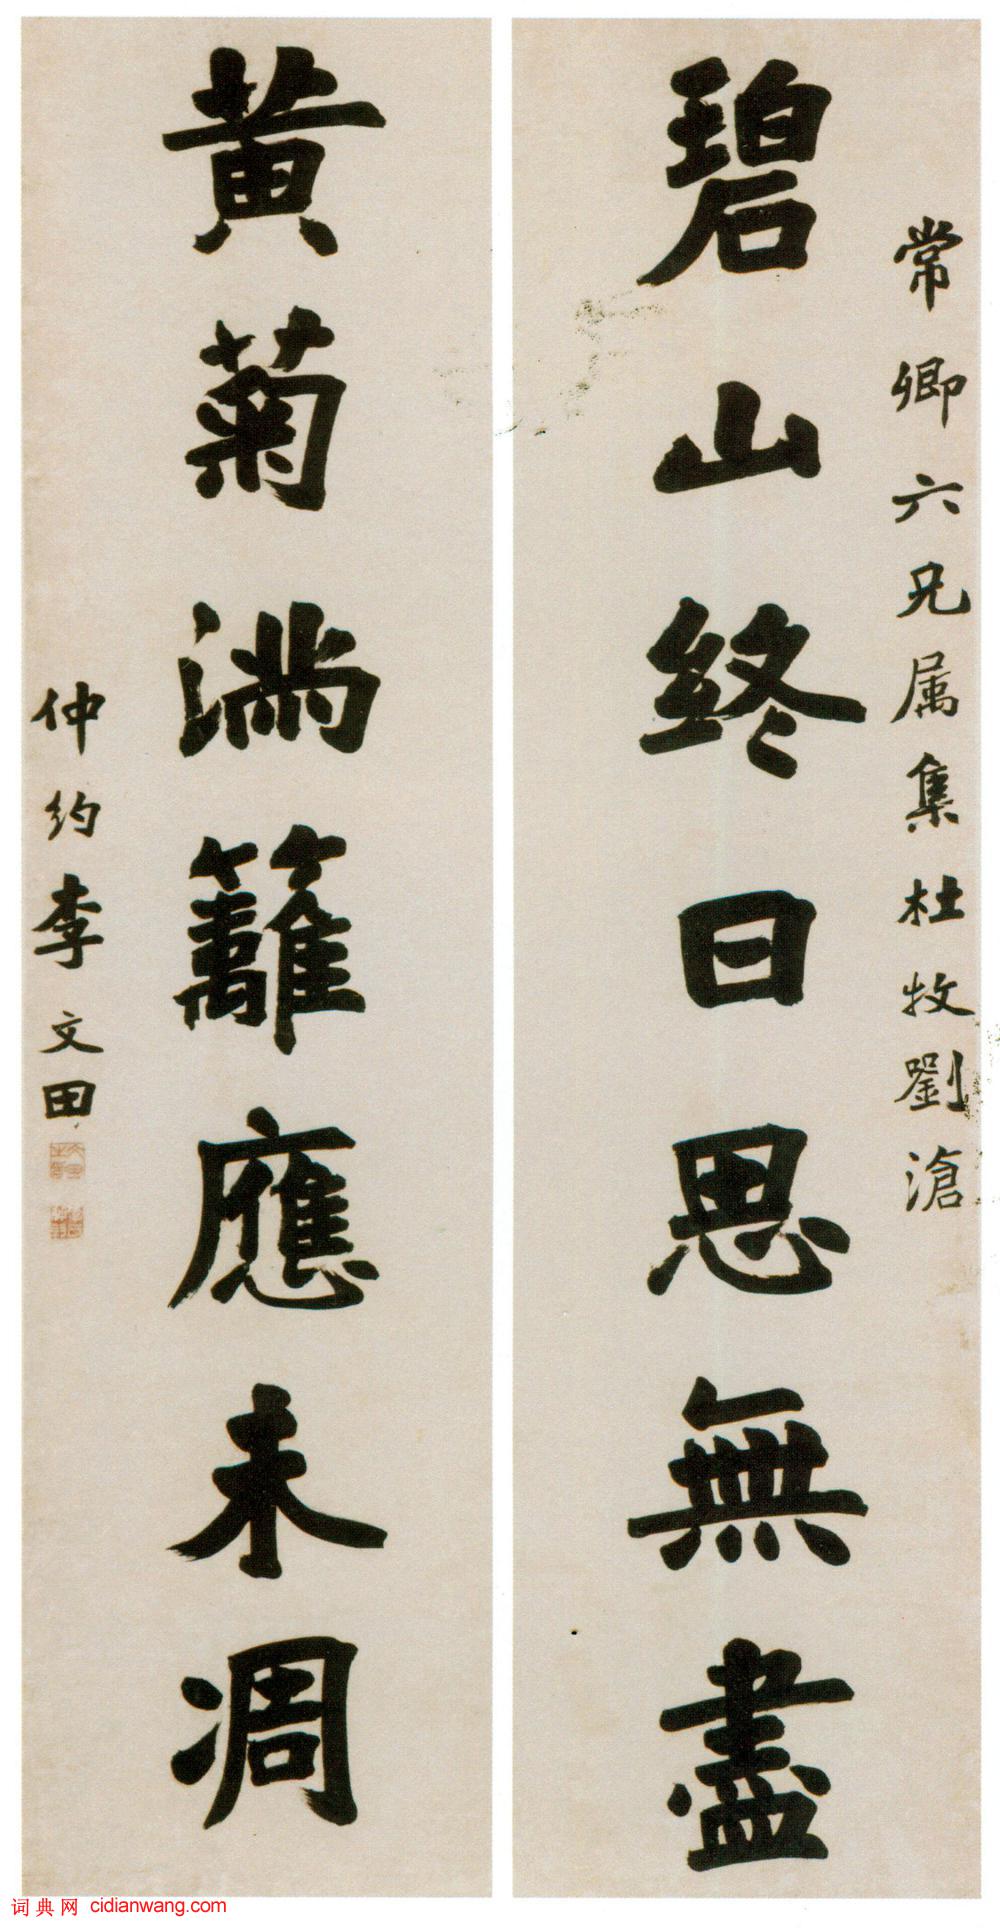 常卿六兄属集杜牧劉滄
碧山終日思無盡
黄菊滿籬應未凋
仲約李文田
词典网 cidianwang.com